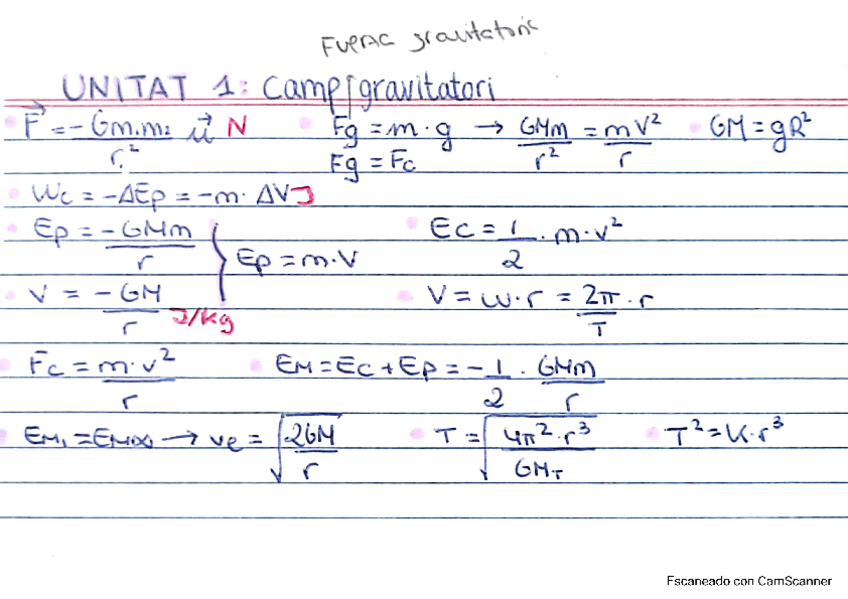 Fuerza gravitatoria
UNITAT 1: Camp gravitatori
F⃗ = -Gm₁m₂/r² u⃗ N   Fg = m · g → GMm/r² = mv²/r   GM = gR²
Fg = Fc
Wc = -ΔEp = -m · ΔV J
Ep = -GMm/r   Ec = 1/2 · m · v²
Ep = m · V
V = -GM/r J/kg   V = w · r = 2π/T · r
Fc = m · v²/r   EM = Ec + Ep = -1/2 · GMm/r
EM₁ = EM∞ → ve = √(2GM/r)   T = √(4π² · r³/GM_T)   T² = K · r³
Escaneado con CamScanner